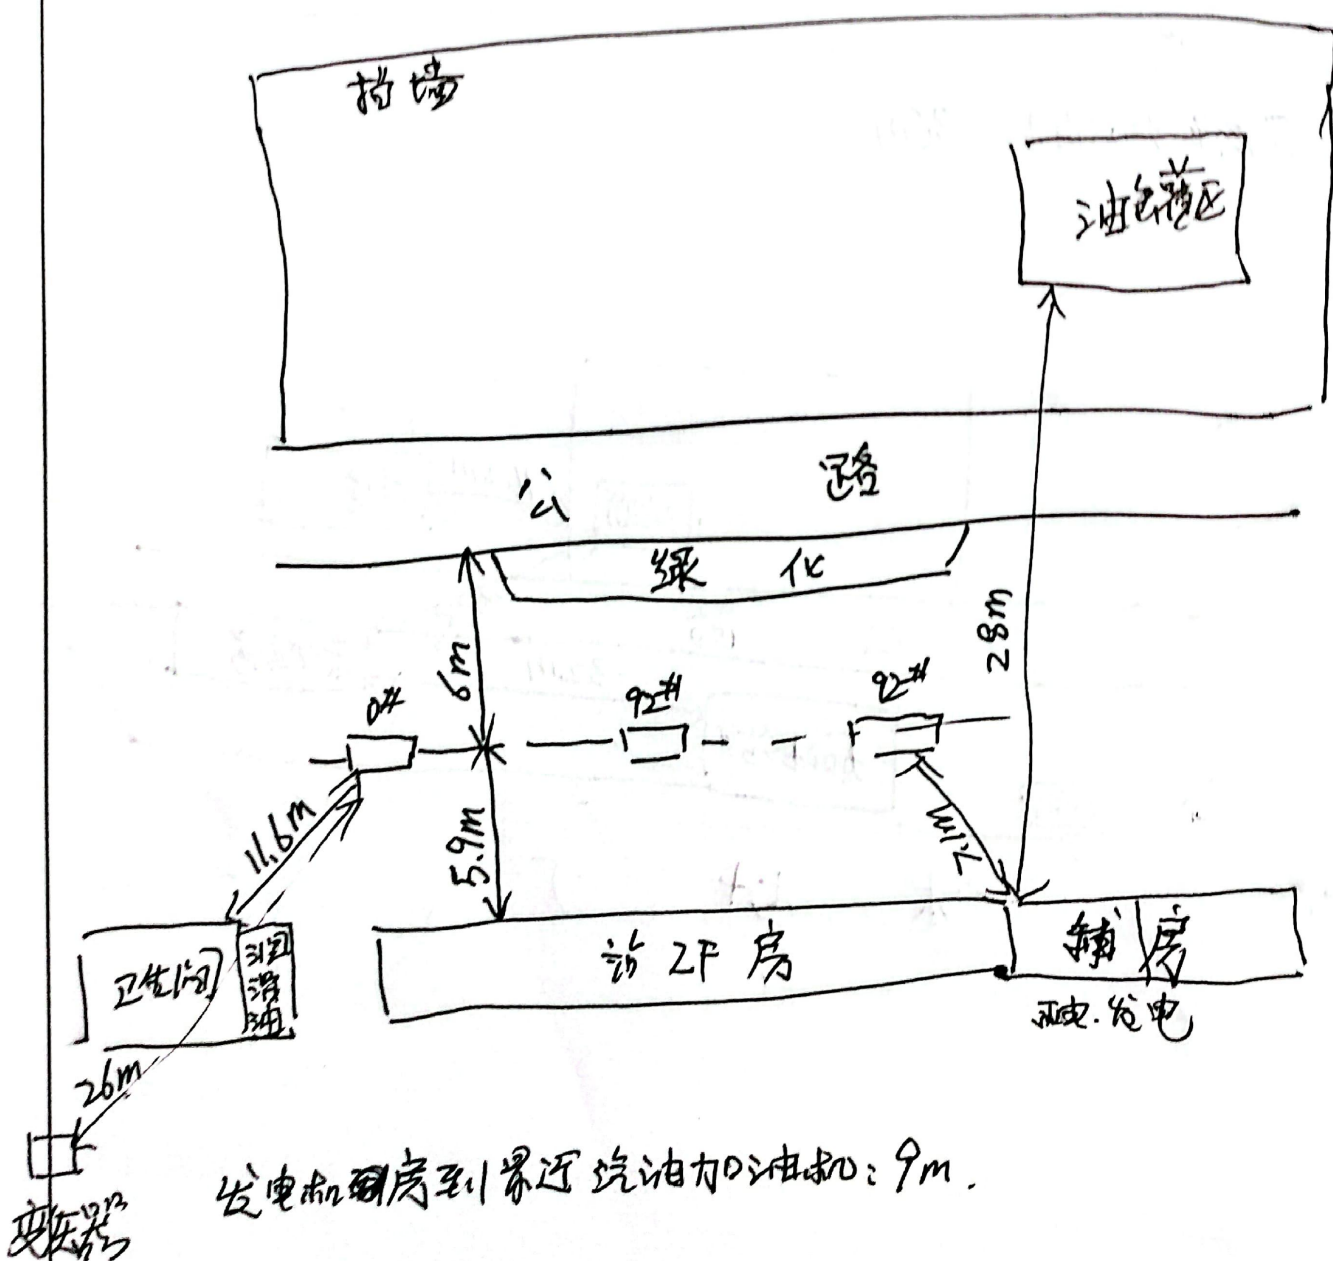 挡墙
油罐区
公 路
绿 化
28m
6m
0#
92#
92#
11.6m
5.9m
7.1m
卫生间
润滑油
站房
辅房
配电.发电
26m
变压器
发电机房到最近汽油加油机:9m.